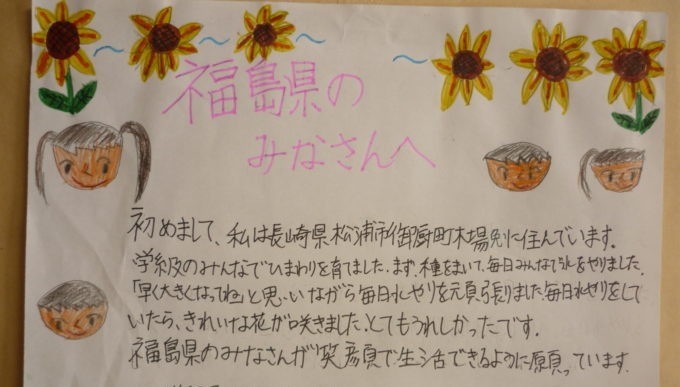 福島県の
みなさんへ
初めまして、私は長崎県松浦市御厨町木場免に住んでいます。
学級のみんなでひまわりを育てました。まず、種をまいて、毎日みんなで水をやりました。
「早く大きくなってね」と思いながら毎日水やりを頑張りました。毎日水やりをして
いたら、きれいな花が咲きました。とてもうれしかったです。
福島県のみなさんが笑顔で生活できるように願っています。